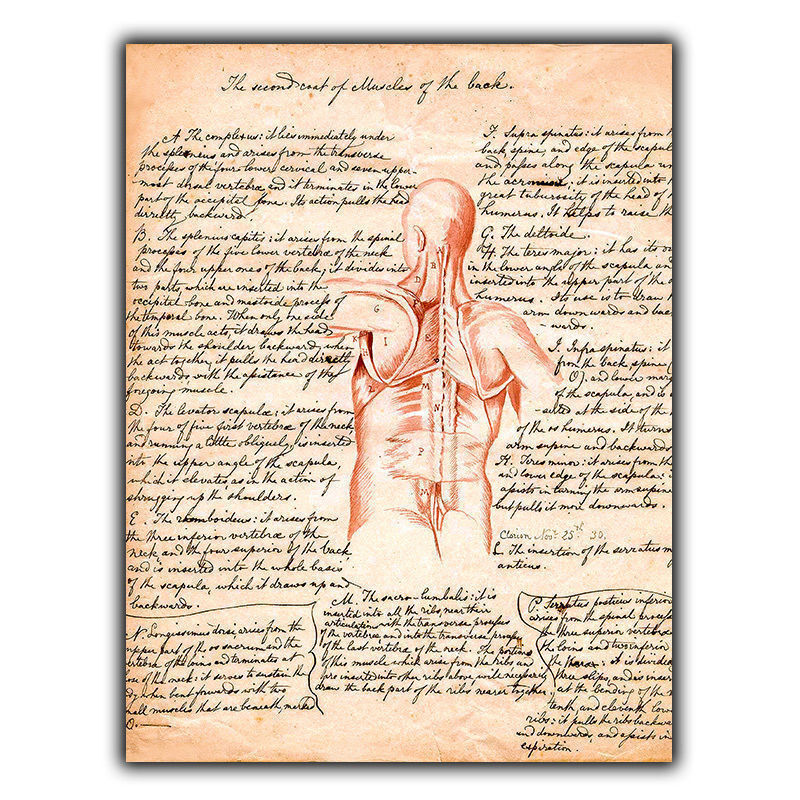 The second coat of Muscles of the back.
A The complexus: it lies immediately under
the splenius and arises from the transverse
processes of the four lower cervical and seven upper-
most dorsal vertebræ and it terminates in the lower
part of the occipital bone. Its action pulls the head
directly backward.
B. The splenius capitis: it arises from the spinal
processes of the five lower vertebræ of the neck
and the four upper ones of the back; it divides into
two parts, which are inserted into the
occipital bone and mastoide process of
the temporal bone. When only one side
of this muscle acts it draws the head
towards the shoulder backward; when
the act together, it pulls the head directly
backwards with the assistance of the
foregoing muscle.
D. The levator scapulæ; it arises from
the four of five first vertebræ of the neck
and running a little obliquely, is inserted
into the upper angle of the scapula,
which it elevates as in the action of
shrugging up the shoulders.
E. The romboideus: it arises from
the three inferior vertebræ of the
neck and the four superior of the back
and is inserted into the whole basis
of the scapula, which it draws up and
backwards.
N. Longissimus dorsi, arises from the
upper part of the os sacrum and the
vertebræ of the loins and terminates at
one of the neck: it serves to sustain the
dy when bent forwards with two
mall muscles that are beneath, marked
O.
F. Supra spinatus: it arises from
back, spine, and edge of the scapul
and passes along the scapula un
the acromion; it is inserted into
great tuberosity of the head of
humerus. It helps to raise th
G. The deltoide.
H. The teres major: it has its o
in the lower angle of the scapula an
inserted into the upper part of the
humerus. Its use is to draw t
arm downwards and bac
- wards.
I. Infra spinatus: it
from the back spine (
O). and lower mar
of the scapula, and is
- serted at the side of the
of the os humerus. It turns
arm supine and backwards
K. Teres minor: it arises from th
and lower edge of the scapula:
assists in turning the arm supin
but pulls it more downwards.
Clarion Nov. 25th 30.
L. The insertion of the serratus m
anticus.
M. The sacro-lumbalis: it is
inserted into all the ribs near their
articulation with the transverse processes
of the vertebræ and into the transverse process
of the last vertebræ of the neck. The portions
of this muscle which arise from the ribs an
are inserted into other ribs above, will necessarily
draw the back part of the ribs nearer together.
P. Serratus posticus inferior
arises from the spinal process
the three superior vertebræ
the loins and two inferior
the thorax: it is divided
three slips, and is inser
at the bending of the n
tenth, and eleventh low
ribs: it pulls the ribs backwa
and downwards, and assists in
expiration.
B
D
F
G
I
E
K
H
L
M
N
P
M